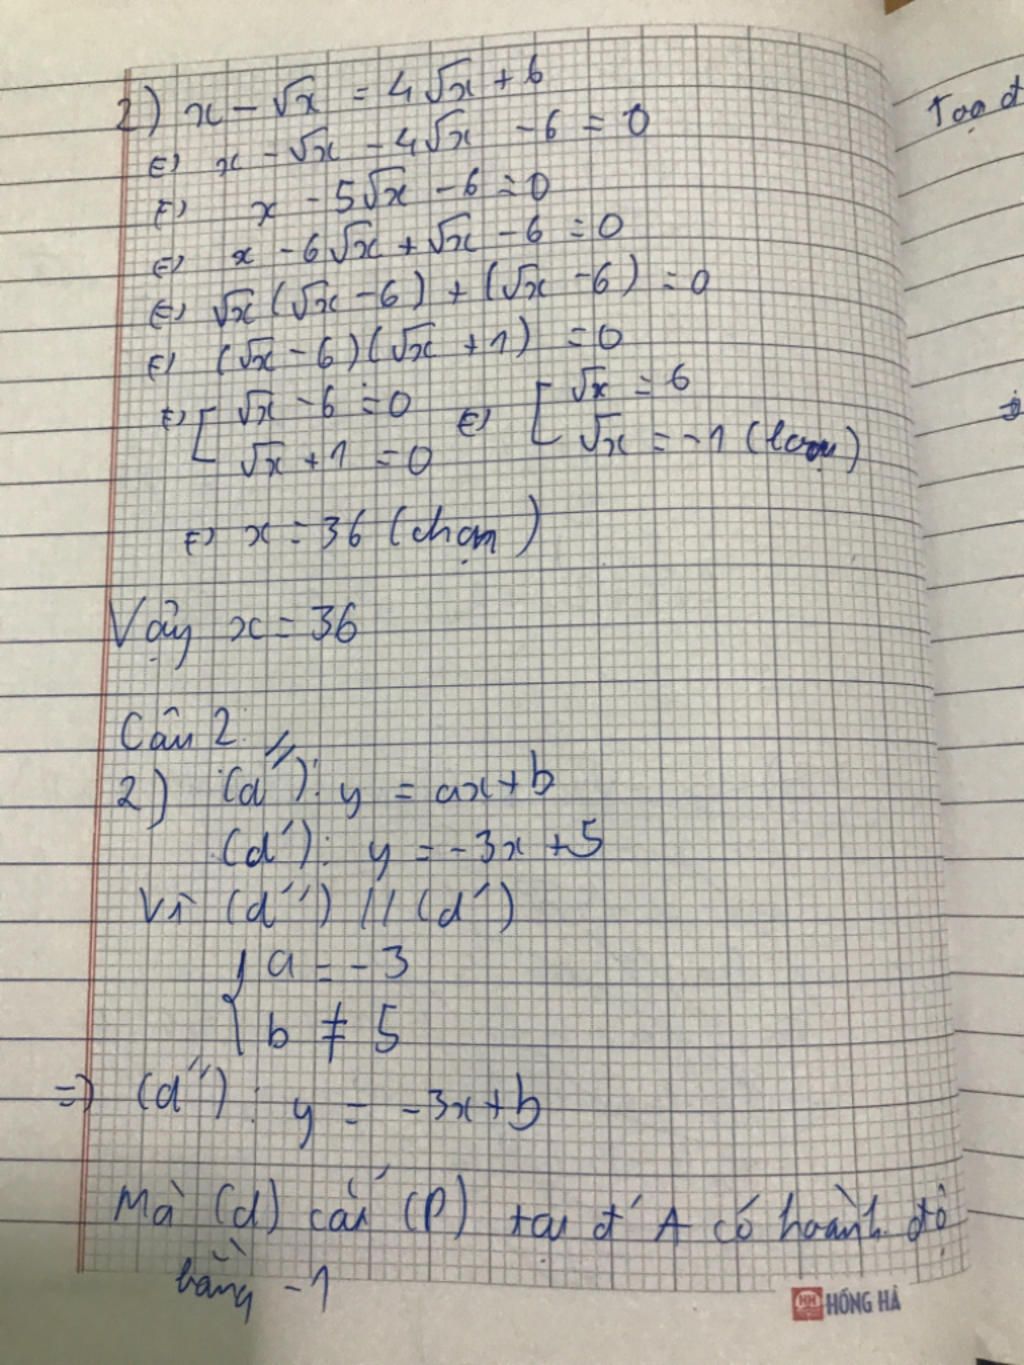 2) x - √x = 4√x + 6
⇔ x - √x - 4√x - 6 = 0
⇔ x - 5√x - 6 = 0
⇔ x - 6√x + √x - 6 = 0
⇔ √x(√x - 6) + (√x - 6) = 0
⇔ (√x - 6)(√x + 1) = 0
⇔ [ √x - 6 = 0 ⇔ [ √x = 6
√x + 1 = 0 √x = -1 (loại)
⇔ x = 36 (chọn)
Vậy x = 36
Câu 2
2) (d''): y = ax + b
(d'): y = -3x + 5
Vì (d'') // (d')
{ a = -3
b ≠ 5
=> (d''): y = -3x + b
Mà (d) cắt (P) tại đ' A có hoành độ
bằng -1
Toạ đ
HH HỒNG HÀ